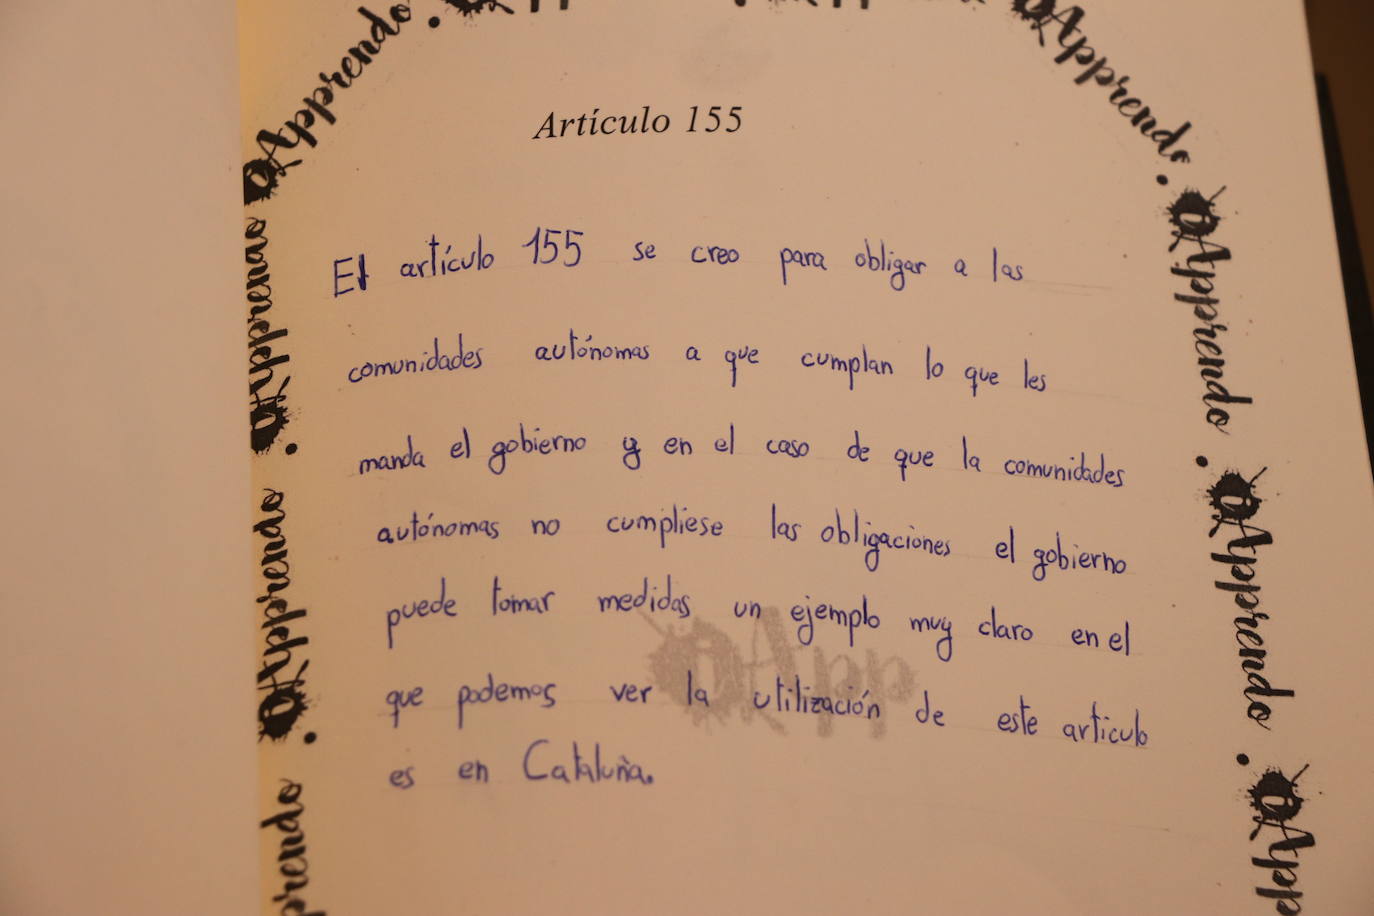 Apprendo.
Apprendo.
Artículo 155
El artículo 155 se creo para obligar a las
comunidades autónomas a que cumplan lo que les
manda el gobierno y en el caso de que la comunidades
autónomas no cumpliese las obligaciones el gobierno
puede tomar medidas un ejemplo muy claro en el
que podemos ver la utilización de este articulo
es en Cataluña.
Apprendo.
Apprendo.
Apprendo.
Apprendo.
prendo
App